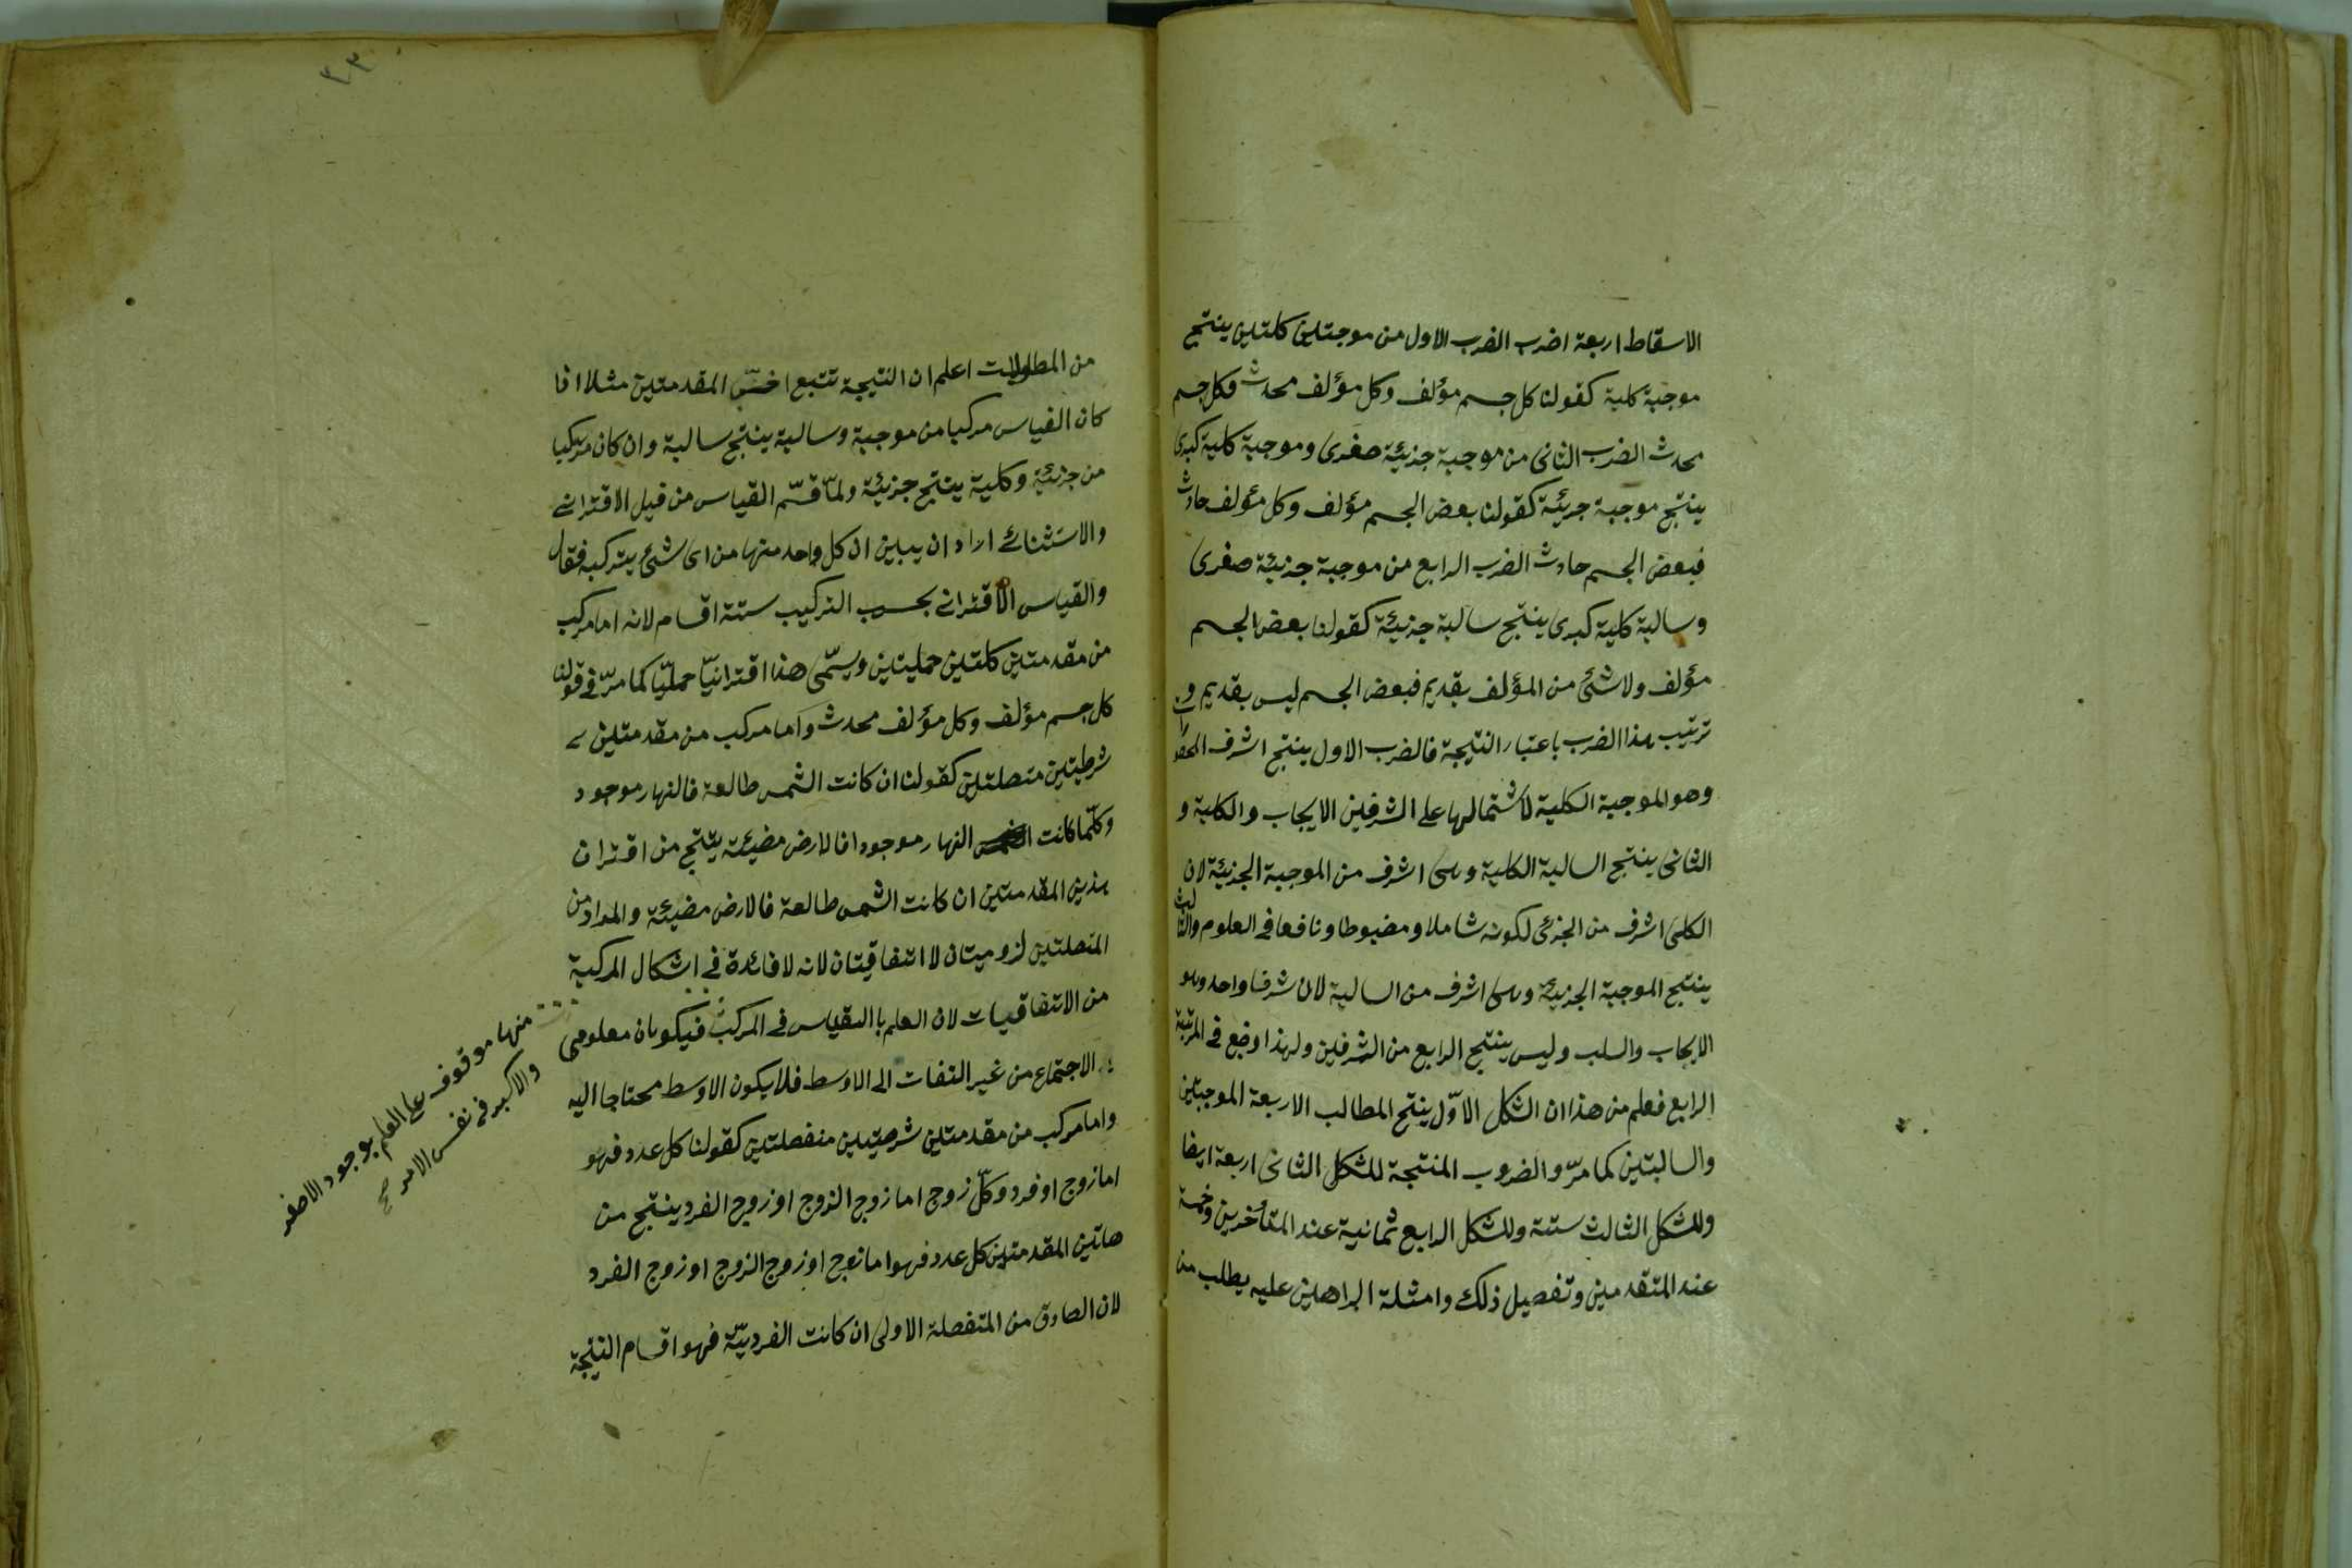 الاسقاط اربعة اضرب الضرب الاول من موجبتين كلتين ينتج
موجبة كلية كقولنا كل جسم مؤلف وكل مؤلف محدث فكل جسم
محدث الضرب الثانى من موجبة جزئية صغرى وموجبة كلية كبرى
ينتج موجبة جزئية كقولنا بعض الجسم مؤلف وكل مؤلف حادث
فبعض الجسم حادث الضرب الرابع من موجبة جزئية صغرى
وسالبة كلية كبرى ينتج سالبة جزئية كقولنا بعض الجسم
مؤلف ولا شئ من المؤلف بقديم فبعض الجسم ليس بقديم و
ترتيب هذا الضرب باعتبار النتيجة فالضرب الاول ينتج اشرف
وهو الموجبة الكلية لاشتمالها على الشرفين الايجاب والكلية و
الثانى ينتج السالبة الكلية وهى اشرف من الموجبة الجزئية لان
الكلى اشرف من الجزئى لكونه شاملا ومضبوطا ونافعا فى العلوم والثالث
ينتج الموجبة الجزئية وهى اشرف من السالبة لان شرفا واحد وهو
الايجاب والسلب وليس ينتج الرابع من الشرفين ولهذا وضع فى المرتبة
الرابع فعلم من هذا ان الشكل الاوّل ينتج المطالب الاربعة الموجبتين
والسالبتين كما مرّ والضروب المنتجة للشكل الثانى اربعة ايضا
وللشكل الثالث ستة وللشكل الرابع ثمانية عند المتأخرين وخمسة
عند المتقدمين وتفصيل ذلك وامثلة البراهين عليه يطلب من
٣٣
من المطولات اعلم ان النتيجة تتبع اخسّ المقدمتين مثلا اذا
كان القياس مركبا من موجبة وسالبة ينتج سالبة وان كان مركبا
من جزئية وكلية ينتج جزئية ولمّا قسّم القياس من قبل الاقترانى
والاستثنائى اراد ان يبين ان كل واحد منها من اى شئ يتركب فقال
والقياس الاقترانى بحسب التركيب ستة اقسام لانه اما مركب
من مقدمتين كلتين حمليتين ويسمّى هذا اقترانيّا حمليّا كما مرّ فى قولنا
كل جسم مؤلف وكل مؤلف محدث واما مركب من مقدمتين
شرطيتين متصلتين كقولنا ان كانت الشمس طالعة فالنهار موجود
وكلّما كانت النهار موجودا فالارض مضيئة ينتج من اقتران
هذين المقدمتين ان كانت الشمس طالعة فالارض مضيئة والمراد من
المتصلتين لزوميتان لا اتفاقيتان لانه لا فائدة فى اشكال المركبة
من الاتفاقيات لان العلم باالقياس فى المركب فيكونان معلومى
الاجتماع من غير التفات الى الاوسط فلا يكون الاوسط محتاجا اليه
واما مركب من مقدمتين شرطيتين منفصلتين كقولنا كل عدد فهو
اما زوج او فرد وكلّ زوج اما زوج الزوج او زوج الفرد ينتج من
هاتين المقدمتين كل عدد فهو اما زوج او زوج الزوج او زوج الفرد
لان الصادق من المتفصلة الاولى ان كانت الفرديّة فهو اقسام النتيجة
منها موقوف على العلم بوجود الاصغر
والاكبر فى نفس الامر صح